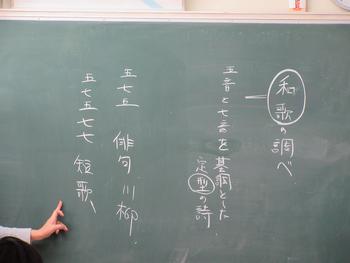 和歌の調べ
五音と七音を基調とした
定型の詩
五七五 俳句、川柳
五七五七七 短歌、